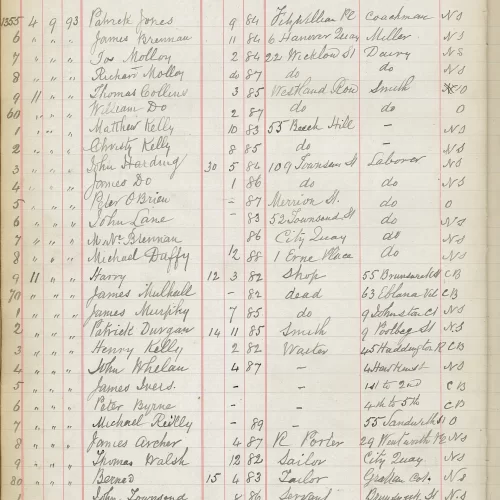 1355 4 9 93 Patrick Jones 9 84 Fitzwilliam Pl Coachman NS
6 " " " James Brennan 11 84 6 Hanover Quay Miller NS
7 " " " Jos Molloy 2 84 22 Wicklow St Dairy NS
8 " " " Richard Molloy do 87 do do NS
9 11 " " Thomas Collins 3 85 Westland Row Smith O
60 " " " William Do 2 87 do do O
1 " " " Matthew Kelly 10 83 55 Beech Hill - NS
2 " " " Christy Kelly 8 85 do - NS
3 " " " John Harding 30 5 84 109 Townsen St Laborer NS
4 " " " James Do 1 86 do do NS
5 " " " Peter O'Brien - 87 Merrion St. do O
6 " " " John Lane - 83 52 Townsend St do NS
7 " " " Brennan 86 City Quay do NS
8 " " " Michael Daffy 1/2 88 1 Erne Place do NS
9 11 " " Harry 12 3 82 Shop 55 CB
70 " " " James Mulhall - 82 dead 63 Eblana Vil CB
1 " " " James Murphy 7 85 do 9 Johnston Ct NS
2 " " " Patrick Durgan 14 11 85 Smith 9 Poolbeg St NS
3 " " " Henry Kelly 2 82 Waiter 45 Haddington R CB
4 " " " John Whelan 4 87 - 4 Hawkins St NS
5 " " " James Ivers. - - 1st to 2nd CB
6 " " " Peter Byrne - - 4th to 5th CB
7 " " " Michael Reilly - 89 - 55 Sandwith St O
8 " " " James Archer 4 87 R Porter 29 Wentworth Pl NS
9 " " " Thomas Walsh 12 82 Sailor City Quay NS
80 " " " Bernard 15 4 83 Tailor Grattan Cot. NS
1 " " " John Townsend 8 86 Servant NS